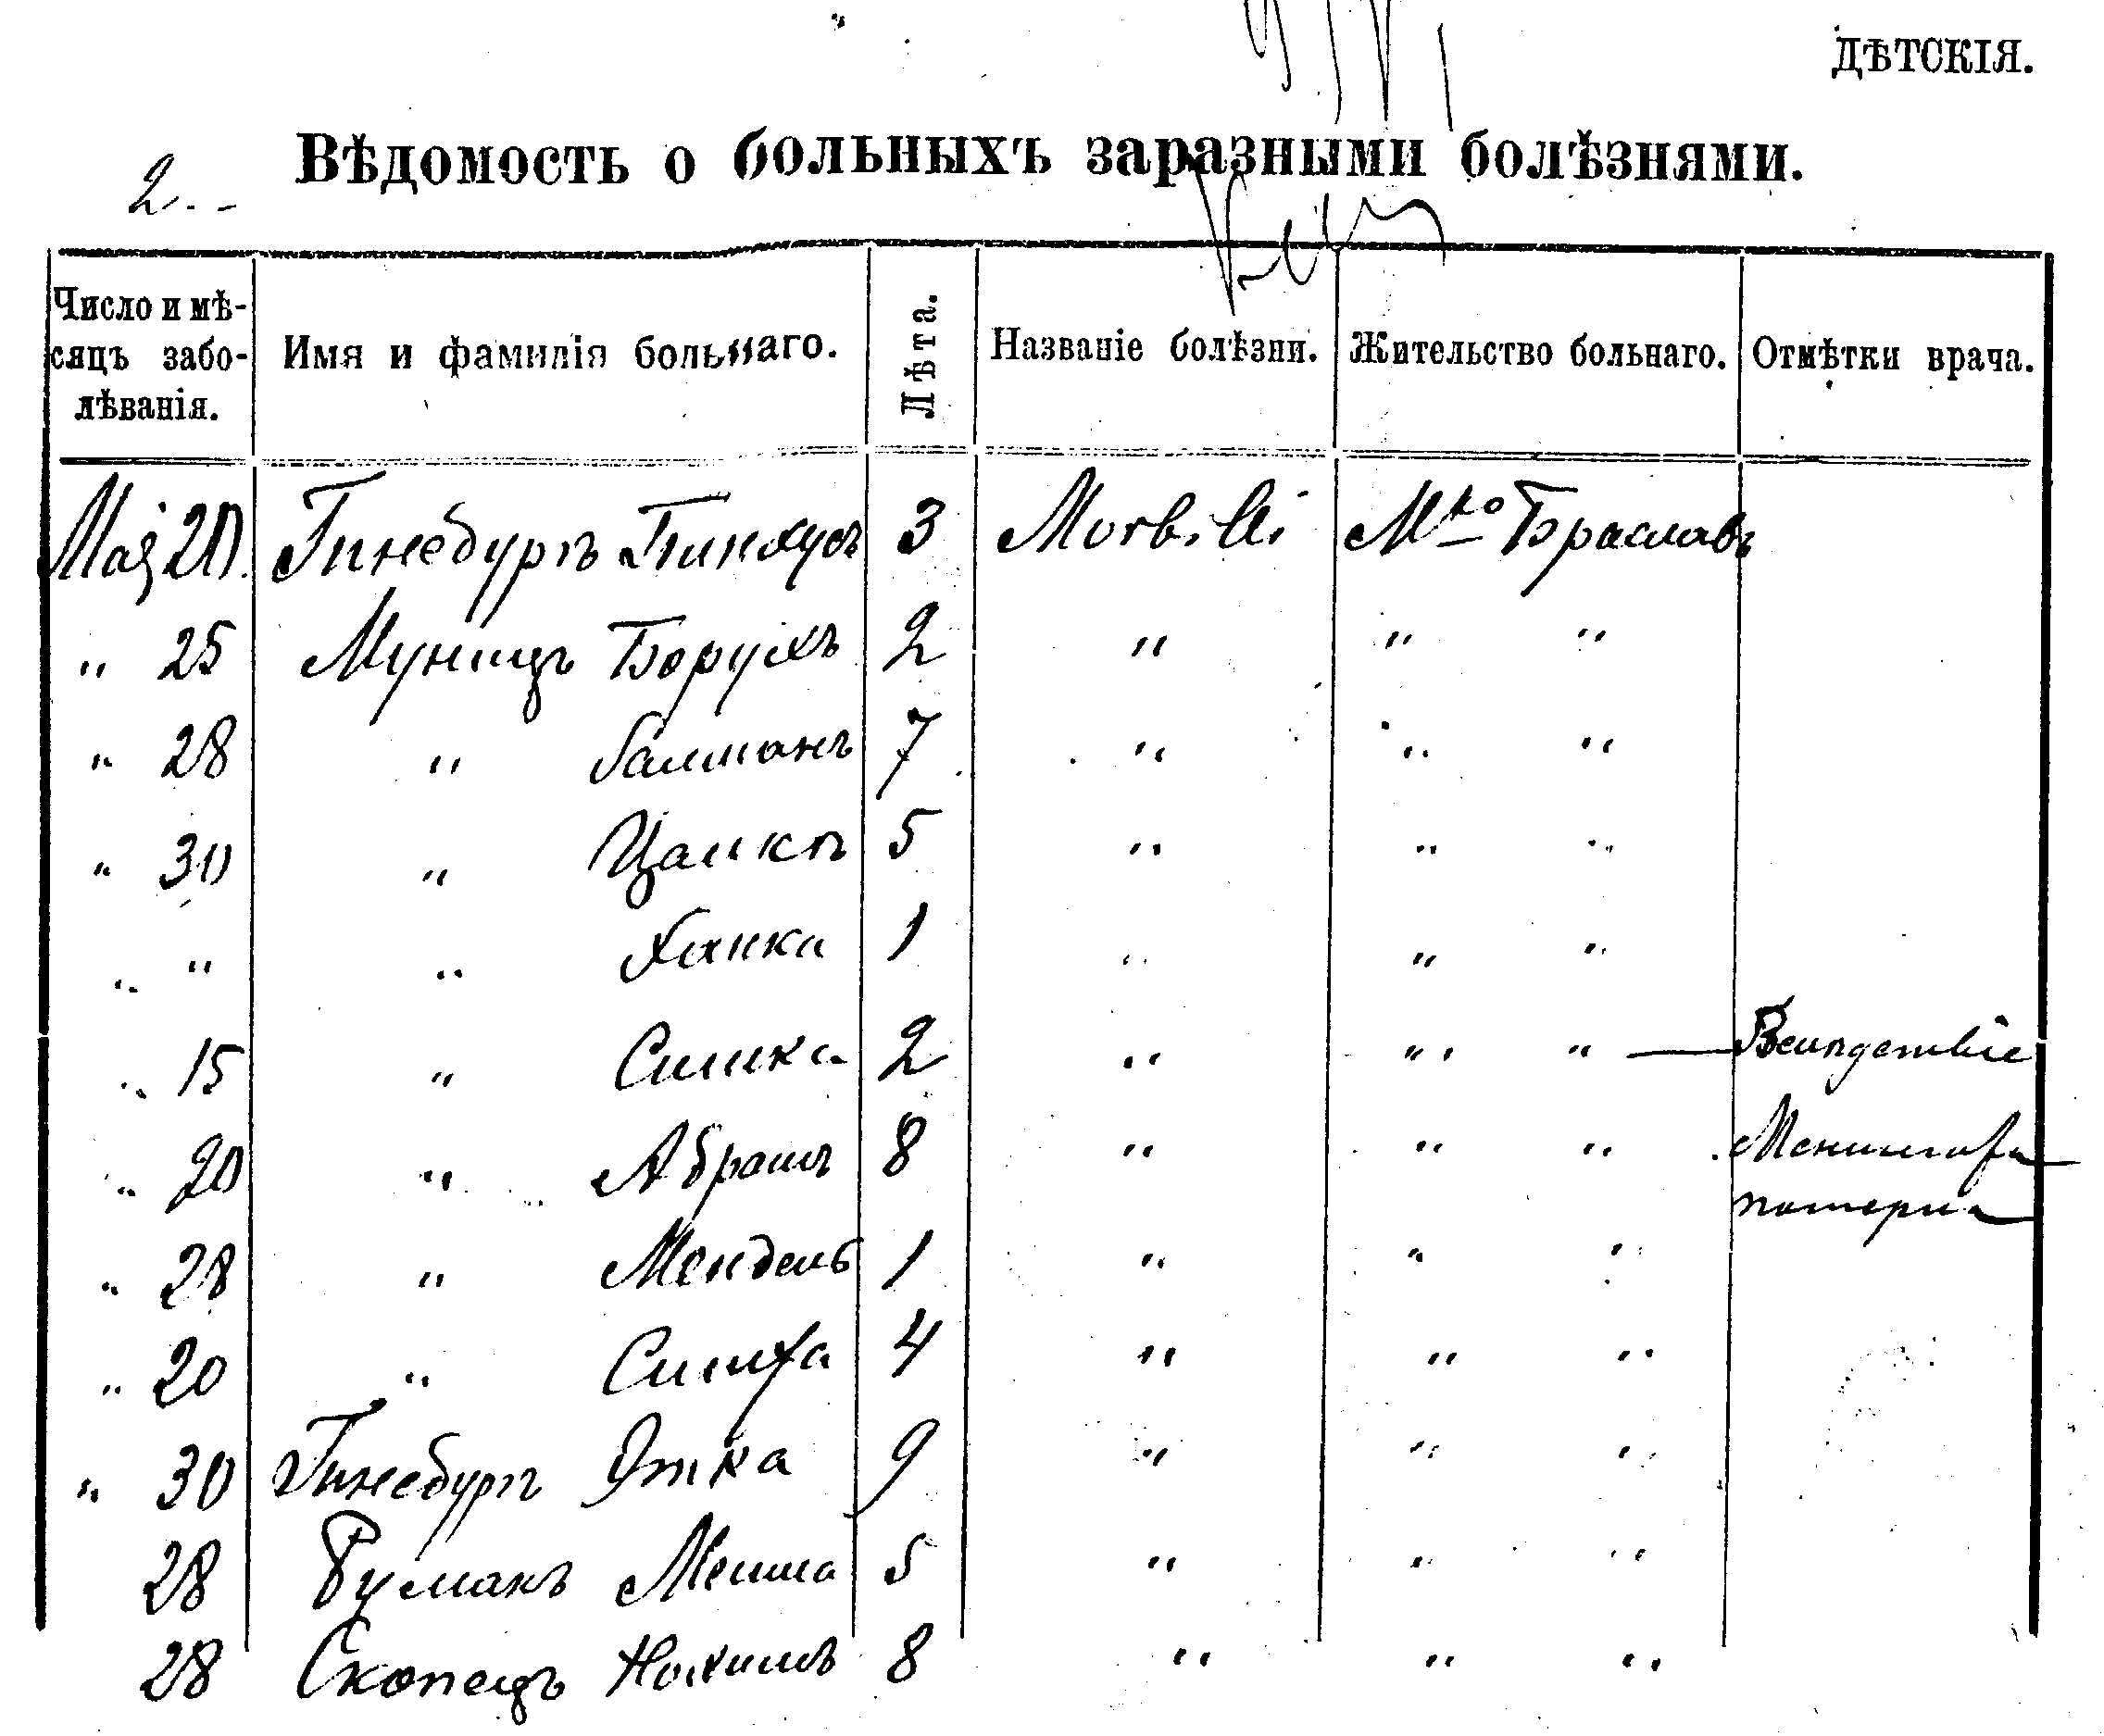 ДѢТСКІЯ.
2.-
Вѣдомость о больныхъ заразными болѣзнями.
Число и мѣ-
сяцъ забо-
лѣванія.
Имя и фамилія больнаго.
Лѣта.
Названіе болѣзни.
Жительство больнаго.
Отмѣтки врача.
Мая 20 Гинсбургъ Пинхусъ 3 Morbilli Мко Браславъ
" 25 Муницъ Борухъ 2 " " "
" 28 " Залманъ 7 " " "
" 30 " 5 " " "
" " " Ханка 1 " " "
" 15 " Симка 2 " " " — Вслѣдствіе
" 20 " Абрамъ 8 " " "
" 28 " Мендель 1 " " "
" 20 " Симха 4 " " "
" 30 Гинсбургъ Этка 9 " " "
28 Муша 5 " " "
28 Скопецъ Нохимъ 8 " " "